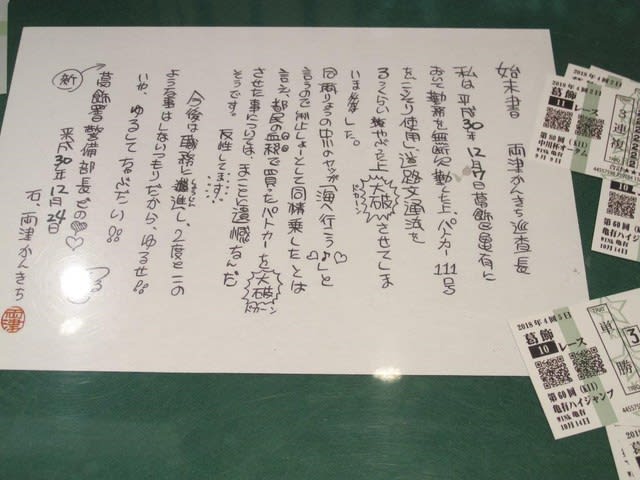 始末書 両津かんきち巡査長
私は平成30年12月17日葛飾区亀有に
おいて勤務を無断欠勤した上、パトカー111号
をこっそり使用し、道路交通法を
くらいやぶった上大破させてしま
ドカーン
いました。
りょうの中川のヤツが「海へ行こう♪」と
言うので制止しよーとして同乗したとは
言え、都民の血税で買ったパトカーを大破
ドカーン
させた事については、まことに遺憾なんだ
そうです。反性してます。
今後は職務に邁進し、2度とこの
ような事はしないつもりだから、ゆるせ!!
いや、ゆるしてちょぶだい!!
葛飾署警備部長どの♡
新
平成30年12月24日
右、両津かんきち
両津
2018年4回2日
葛飾
11 レース
第80回 (XII)
中川杯オータム
9月9日
3連複
10
第60回 (XII)
亀有ハイジャンプ
WINK 亀有
10月14日
2018年4回5日
葛飾
10 レース
第60回 (XII)
亀有ハイジャンプ
WINK 亀有
10月14日
単勝
3